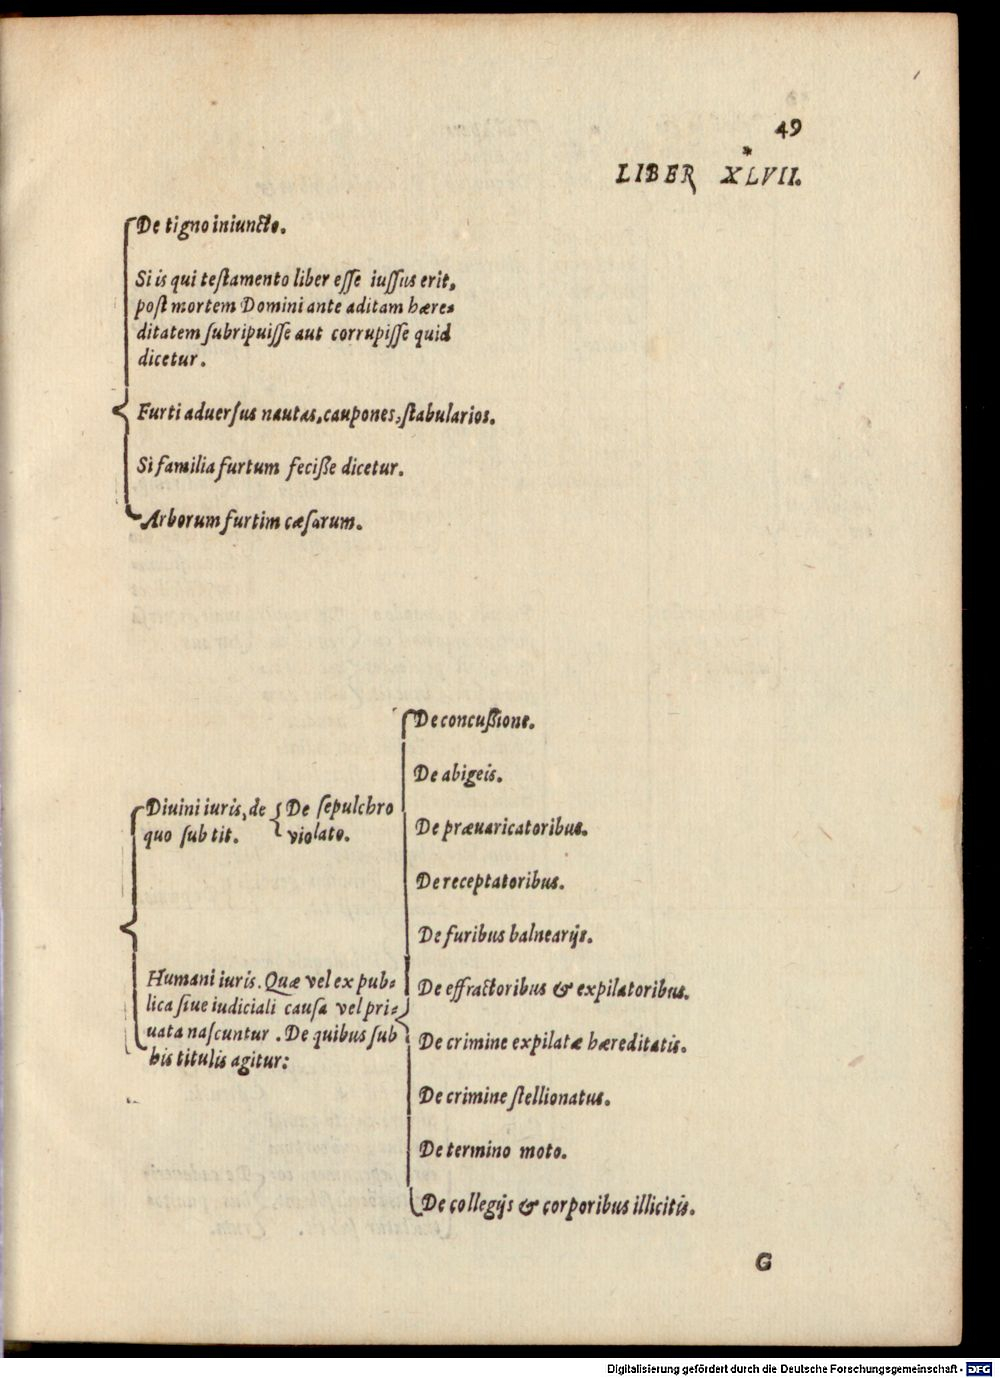 49
LIBER XLVII.
De tigno iniuncto.
Si is qui testamento liber esse iussus erit,
post mortem Domini ante aditam hære-
ditatem subripuisse aut corrupisse quid
dicetur.
Furti aduersus nautas, caupones, stabularios.
Si familia furtum fecisse dicetur.
Arborum furtim cæsarum.
Diuini iuris, de
quo sub tit.
De sepulchro
violato.
Humani iuris. Quæ vel ex pub-
lica siue iudiciali causa vel pri-
uata nascuntur. De quibus sub
his titulis agitur:
De concussione.
De abigeis.
De præuaricatoribus.
De receptatoribus.
De furibus balnearijs.
De effractoribus & expilatoribus.
De crimine expilatæ hæreditatis.
De crimine stellionatus.
De termino moto.
De collegijs & corporibus illicitis.
G
Digitalisierung gefördert durch die Deutsche Forschungsgemeinschaft - DFG